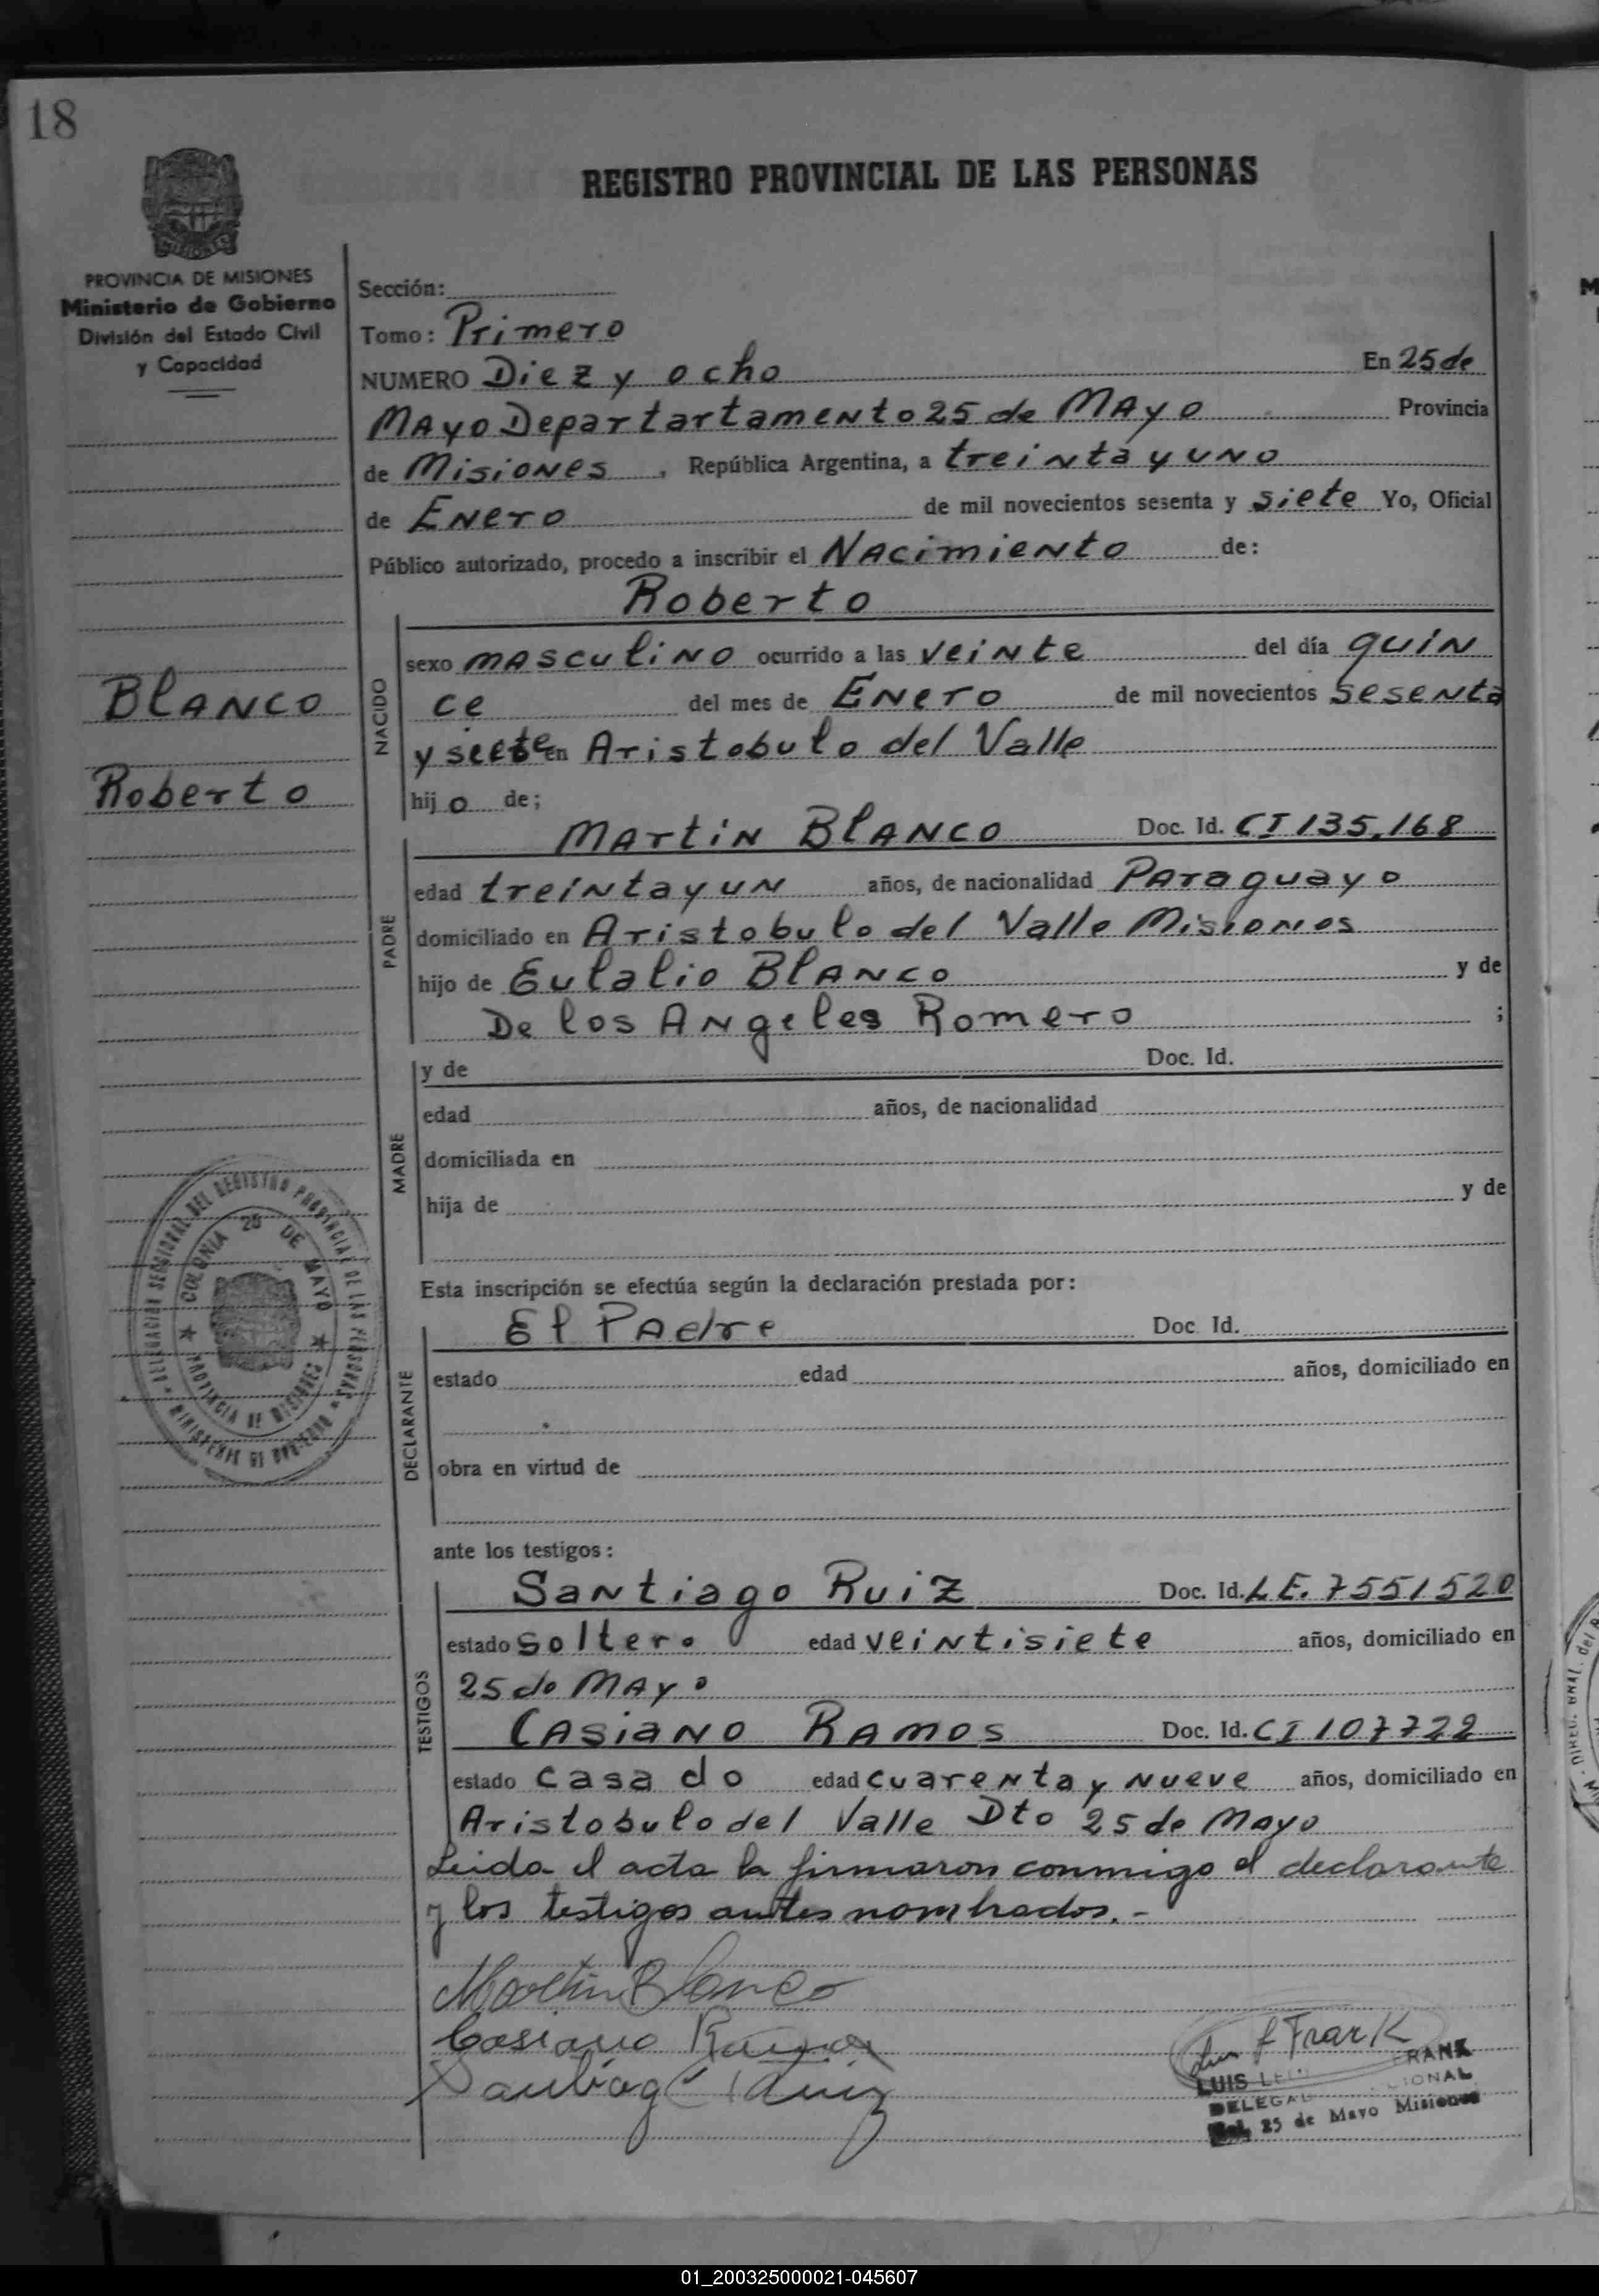 18
REGISTRO PROVINCIAL DE LAS PERSONAS
MISIONES
PROVINCIA DE MISIONES
Ministerio de Gobierno
División del Estado Civil
y Capacidad
Blanco
Roberto
DELEGACION SECCIONAL DEL REGISTRO PROVINCIAL DE LAS PERSONAS
COLONIA 25 DE MAYO
PROVINCIA DE MISIONES
MINISTERIO DE GOBIERNO
Sección:
Tomo: Primero
NUMERO Diez y ocho En 25 de
Mayo Departartamento 25 de Mayo Provincia
de Misiones, República Argentina, a treinta y uno
de Enero de mil novecientos sesenta y siete Yo, Oficial
Público autorizado, procedo a inscribir el Nacimiento de:
Roberto
NACIDO
sexo masculino ocurrido a las veinte del día quin
ce del mes de Enero de mil novecientos sesenta
y siete en Aristobulo del Valle
hijo de;
PADRE
Martin Blanco Doc. Id. CI 135,168
edad treinta y un años, de nacionalidad Paraguayo
domiciliado en Aristobulo del Valle Misiones
hijo de Eulalio Blanco y de
De los Angeles Romero ;
MADRE
y de Doc. Id.
edad años, de nacionalidad
domiciliada en
hija de y de
Esta inscripción se efectúa según la declaración prestada por:
DECLARANTE
El Padre Doc Id.
estado edad años, domiciliado en
obra en virtud de
ante los testigos:
TESTIGOS
Santiago Ruiz Doc. Id. LE. 7551520
estado soltero edad veintisiete años, domiciliado en
25 de Mayo
Casiano Ramos Doc. Id. CI 107722
estado casado edad cuarenta y nueve años, domiciliado en
Aristobulo del Valle Dto 25 de Mayo
Leida el acta la firmaron conmigo el declarante
y los testigos antes nombrados.-
Martin Blanco
Casiano Ramos
Santiago Ruiz
Luis L Frank
LUIS FRANK
25 de Mayo Misiones
01_200325000021-045607